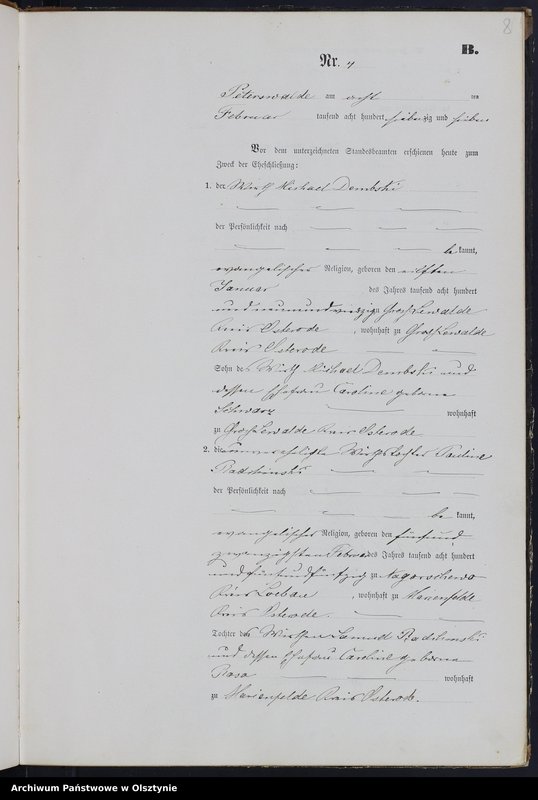 8
B.
Nr. 4
Peterswalde am acht ten
Februar tausend acht hundert siebenzig und sieben
Vor dem unterzeichneten Standesbeamten erschienen heute zum
Zweck der Eheschließung:
1. der Wirth Michael Dembski
der Persönlichkeit nach
be kannt,
evangelischer Religion, geboren den elften
Januar des Jahres tausend acht hundert
und neunundvierzig zu Groß Lewalde
Kreis Osterode, wohnhaft zu Groß Lewalde
Kreis Osterode
Sohn des Wirth Michael Dembski und
dessen Ehefrau Caroline geborne
Schwarz wohnhaft
zu Groß Lewalde Kreis Osterode
2. die unverehelichte Wirthstochter Pauline
der Persönlichkeit nach
be kannt,
evangelischer Religion, geboren den fünfund
zwanzigsten Februar des Jahres tausend acht hundert
und fünfundfünfzig zu
Kreis Loebau, wohnhaft zu Marienfelde
Kreis Osterode.
Tochter des Wirthen Samuel
und dessen Ehefrau Caroline geborne
wohnhaft
zu Marienfelde Kreis Osterode.
Archiwum Państwowe w Olsztynie